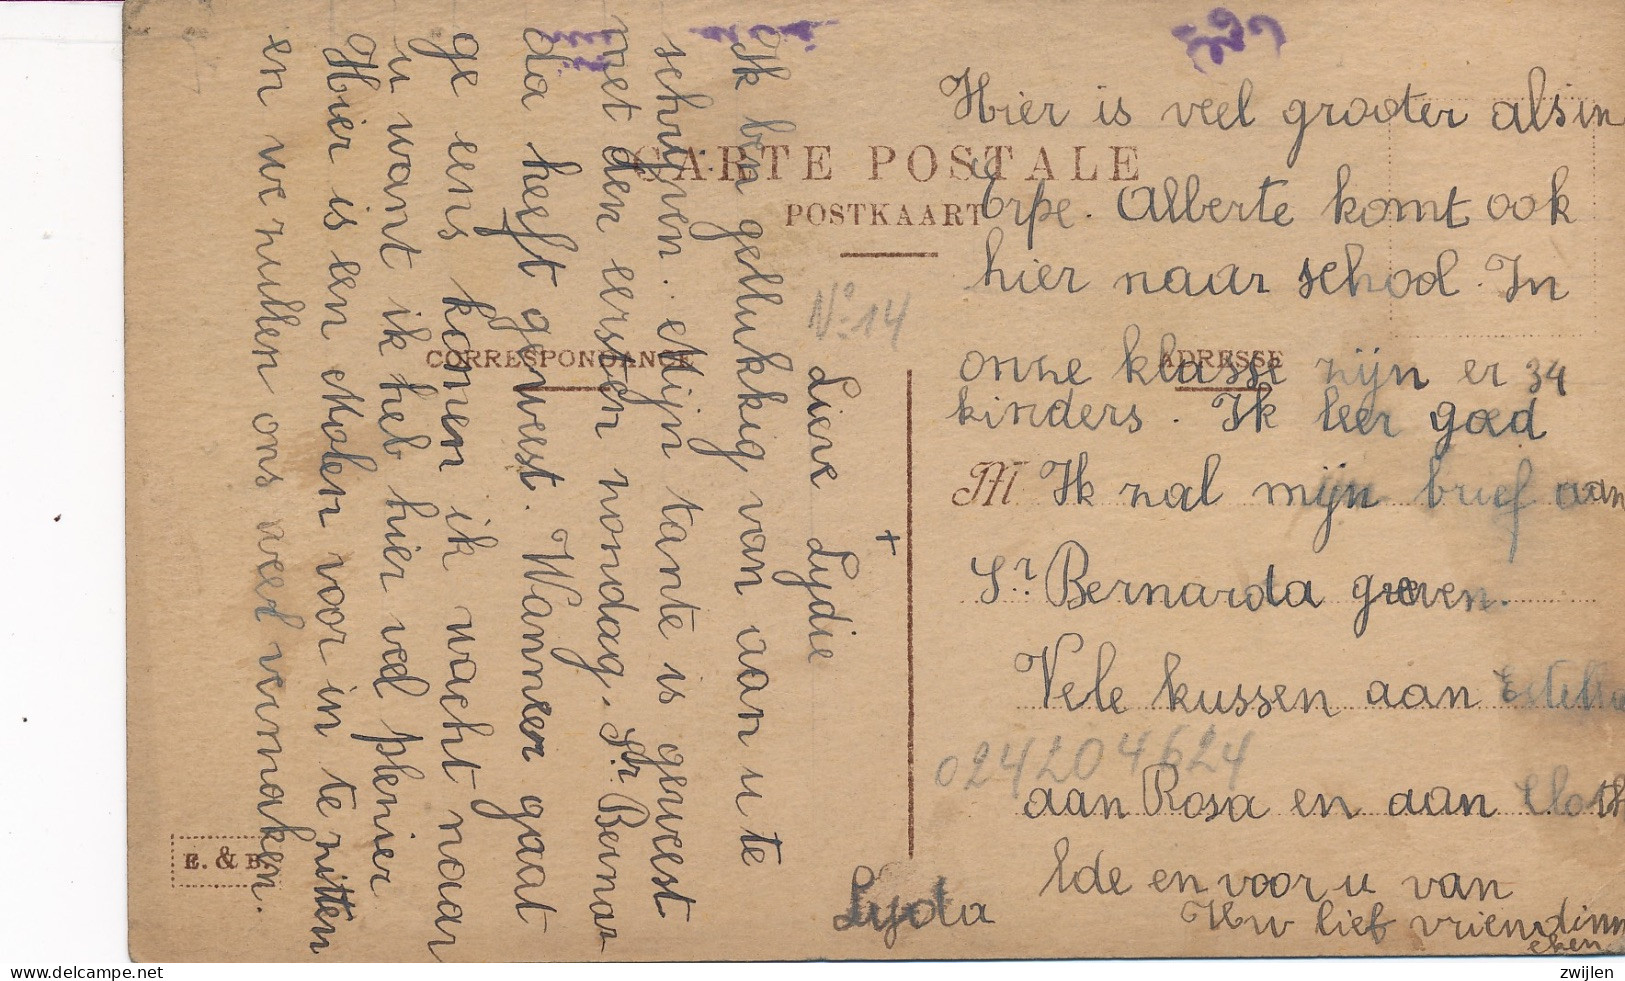 CARTE POSTALE
POSTKAART
CORRESPONDANCE
ADRESSE
M
E. & B.
Nº 14
024204624
Lieve Lydie
Ik ben gellukkig van aan u te
schrijven. Mijn tante is geweest
met den eersten zondag. Sr. Bernar
da heeft geweest. Wanneer gaat
ge eens komen ik wacht naar
u want ik heb hier veel plezier
Hier is een Molen voor in te zitten
en we zullen ons veel vermaken.
Hier is veel grooter als in
Erpe. Alberte komt ook
hier naar school. In
onze klasse zijn er 34
kinders. Ik leer goed
Ik zal mijn brief aan
Sr. Bernarda geven.
Vele kussen aan
aan Rosa en aan Cloth
ilde en voor u van
Uw lief vriendinn
eken
Lyda
zwijlen